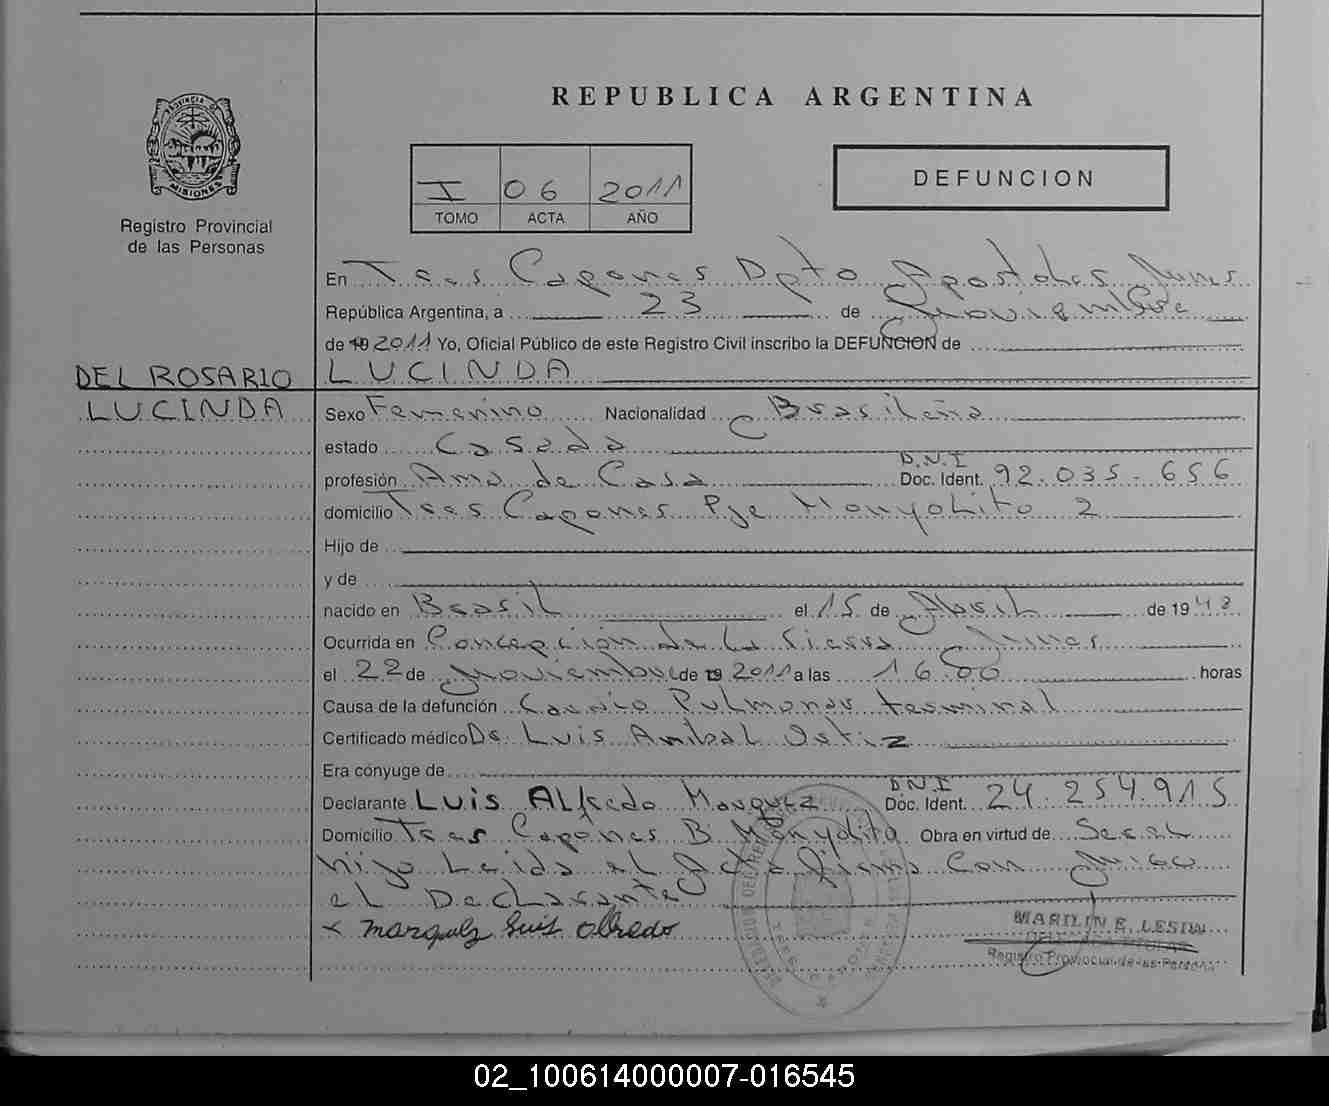 REPUBLICA ARGENTINA
PROVINCIA DE
MISIONES
Registro Provincial
de las Personas
I 06 2011
TOMO ACTA AÑO
DEFUNCION
En Tres Capones Dpto Apostoles Mnes
República Argentina, a 23 de Noviembre
de 19 2011 Yo, Oficial Público de este Registro Civil inscribo la DEFUNCION de
DEL ROSARIO
LUCINDA
LUCINDA
Sexo Femenino Nacionalidad Brasileña
estado Casada
profesión Ama de Casa D.N.I Doc. Ident. 92.035.656
domicilio Tres Capones Pje Monyolito 2
Hijo de
y de
nacido en Brasil el 15 de Abril de 1943
Ocurrida en Concepción de la Sierra Mnes
el 22 de Noviembre de 19 2011 a las 16 00 horas
Causa de la defunción Cardio Pulmonar terminal
Certificado médico Dr. Luis Anibal Ortiz
Era cónyuge de
Declarante Luis Alfredo Marquez DNI Doc. Ident. 24.254.915
Domicilio Tres Capones B Monyolito Obra en virtud de Ser el
hijo Leida el Acta firma Con migo
el Declarante
x Marquez Luis Alfredo
MARILIN R. LESIW
Registro Provincial de las Personas
02_100614000007-016545